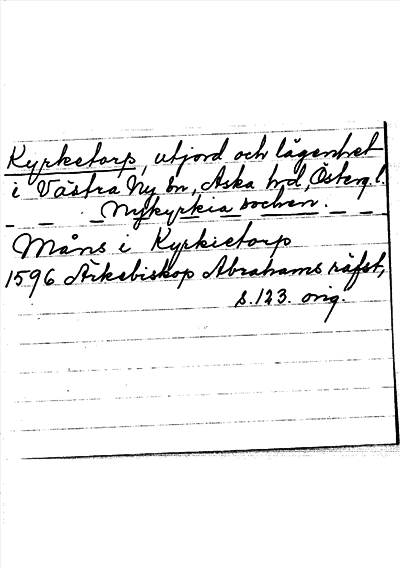 Kyrketorp, utjord och lägenhet
i Västra Ny sn, Aska hd, Österg. l.
_ _ . _ Nykyrkia sochen. _ _
Måns i Kyrkietorp
1596 Ärkebiskop Abrahams räfst,
s. 123. orig.